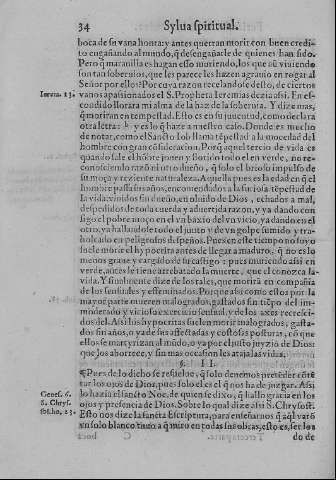 34 Sylua spiritual.
boca de su vana honra: y antes querran morir con buen credi-
to engañando al mundo, q̃ desengañarle de quienes han sido.
Pero q̃ marauilla es hagan esto muriendo, los que aũ viuiendo
son tan soberuios, que les parece les hazen agrauio en rogar al
Señor por ellos: Por cuya razon recelandose desto, de ciertos
Ierem. 13. vanos apassionados el S. Propheta Ieremias dezia assi. En es-
condido llorara mi alma de la haz de la soberuia. Y dize mas,
q̃ moriran en tempestad. Esto es en su juuentud, como declara
otra letra: y es lo q̃ haze a nuestro caso. Donde es mucho
de notar, como el Sancto Iob llama tẽpestad a la mocedad del
hombre con gran cõsideracion. Porq̃ aquel tercio de vida es
quando sale el hõbre jouen y florido todo el en verde, no re-
conosciendo razõ ni otro dueño, q̃ solo el brioso impulso de
su moça y reziente naturaleza. Aquella pues es la edad en q̃ el
hombre passa sus años, encomendados a la furiosa tẽpestad de
la vida: viuidos sin dueño, en oluido de Dios, echados a mal,
despedidos de toda cuerda y aduertida razon, y ya dando con-
sigo el pobre moço en el vn baxio de vn vicio, ya dando en el
otro, ya hallandose todo el junto y de vn golpe sumido y tra-
bolcado en peligrosos despeños. Pues en este tiempo no suyo
sucede morir el hypocrita antes de llegar a maduro, q̃ no es la
menos graue y cargado de su castigo: pues muriendo assi en
verde, antes se tiene arrebatado la muerte, que el conozca la
vida. Y finalmente dize de los tales, que morirã en compañia
de los sensuales y effeminados. Porque assi como estos por la
mayor parte mueren malogrados, gastados sin tiẽpo del im-
moderado y vicioso exercicio sensual, y de los axes recresci-
dos del. Assi los hypocritas suelen morir malogrados, gasta-
dos sin años, o ya de sus affectadas y costosas posturas, cõ que
ellos se martyrizan al mũdo, o ya por el justo juyzio de Dios:
que los aborrece, y sin mas occasion les ataja las vidas.
§. II.
¶Pues de lo dicho se resuelue, q̃ solo deuemos pretender cõtẽ
tar los ojos de Dios, pues solo el es el q̃ nos ha de juzgar. Assi
Genes. 6. lo hazia el sancto Noe, de quien se dixo, q̃ hallo gracia en los
S. Chrys. ojos y presencia de Dios. Sobre lo qual dize assi S. Chrysost.
ibi ho. 23. Esto nos dize la sancta Escriptura, para enseñarnos q̃ aql varõ
vn solo blanco tuuo a q̃ miro en todas sus obras, esto es, ser los
Tercera parte. C do de